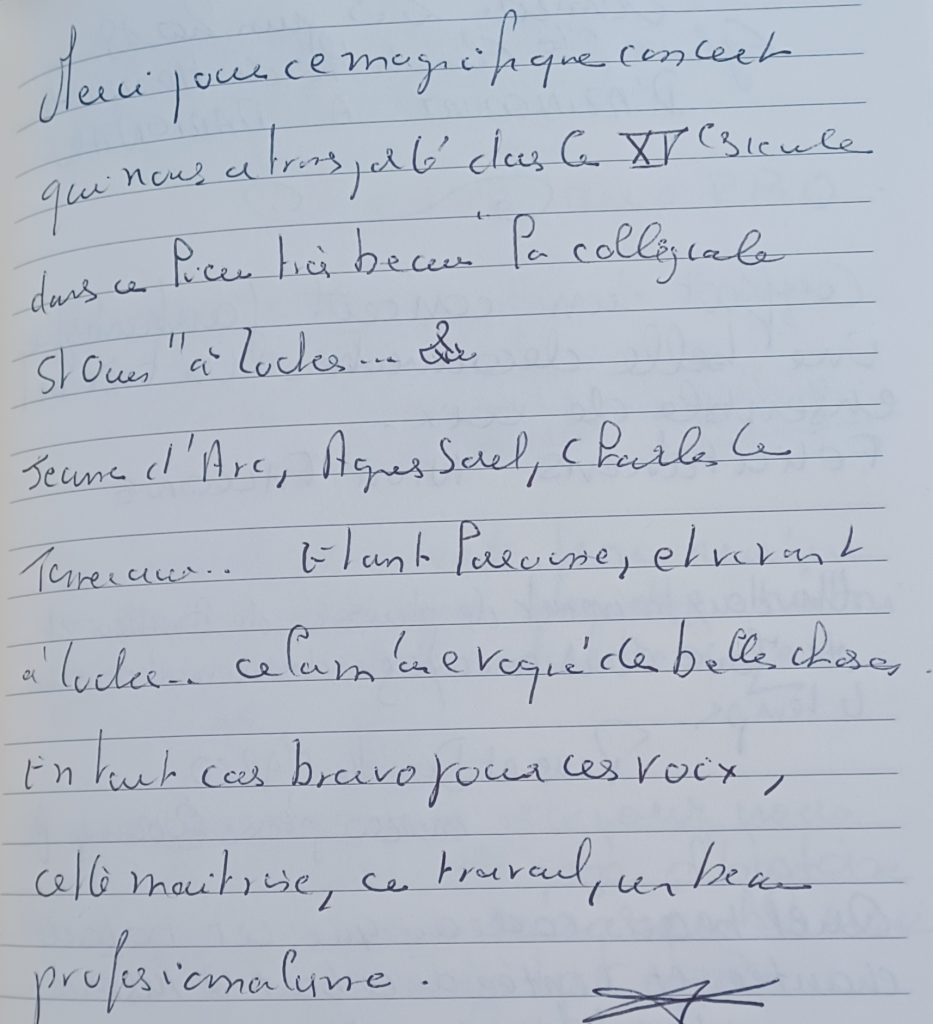 Merci pour ce magnifique concert
qui nous a transporté dans le XVe siècle
dans ce lieu très beau "la collégiale
St Ours" à Loches...
Jeanne d'Arc, Agnes Sorel, Charles le
Temeraire.. Etant Parisienne, et vivant
à Loches... cela m'a evoqué de belles choses.
En tout cas bravo pour ces voix,
cette maitrise, ce travail, un beau
professionalisme.